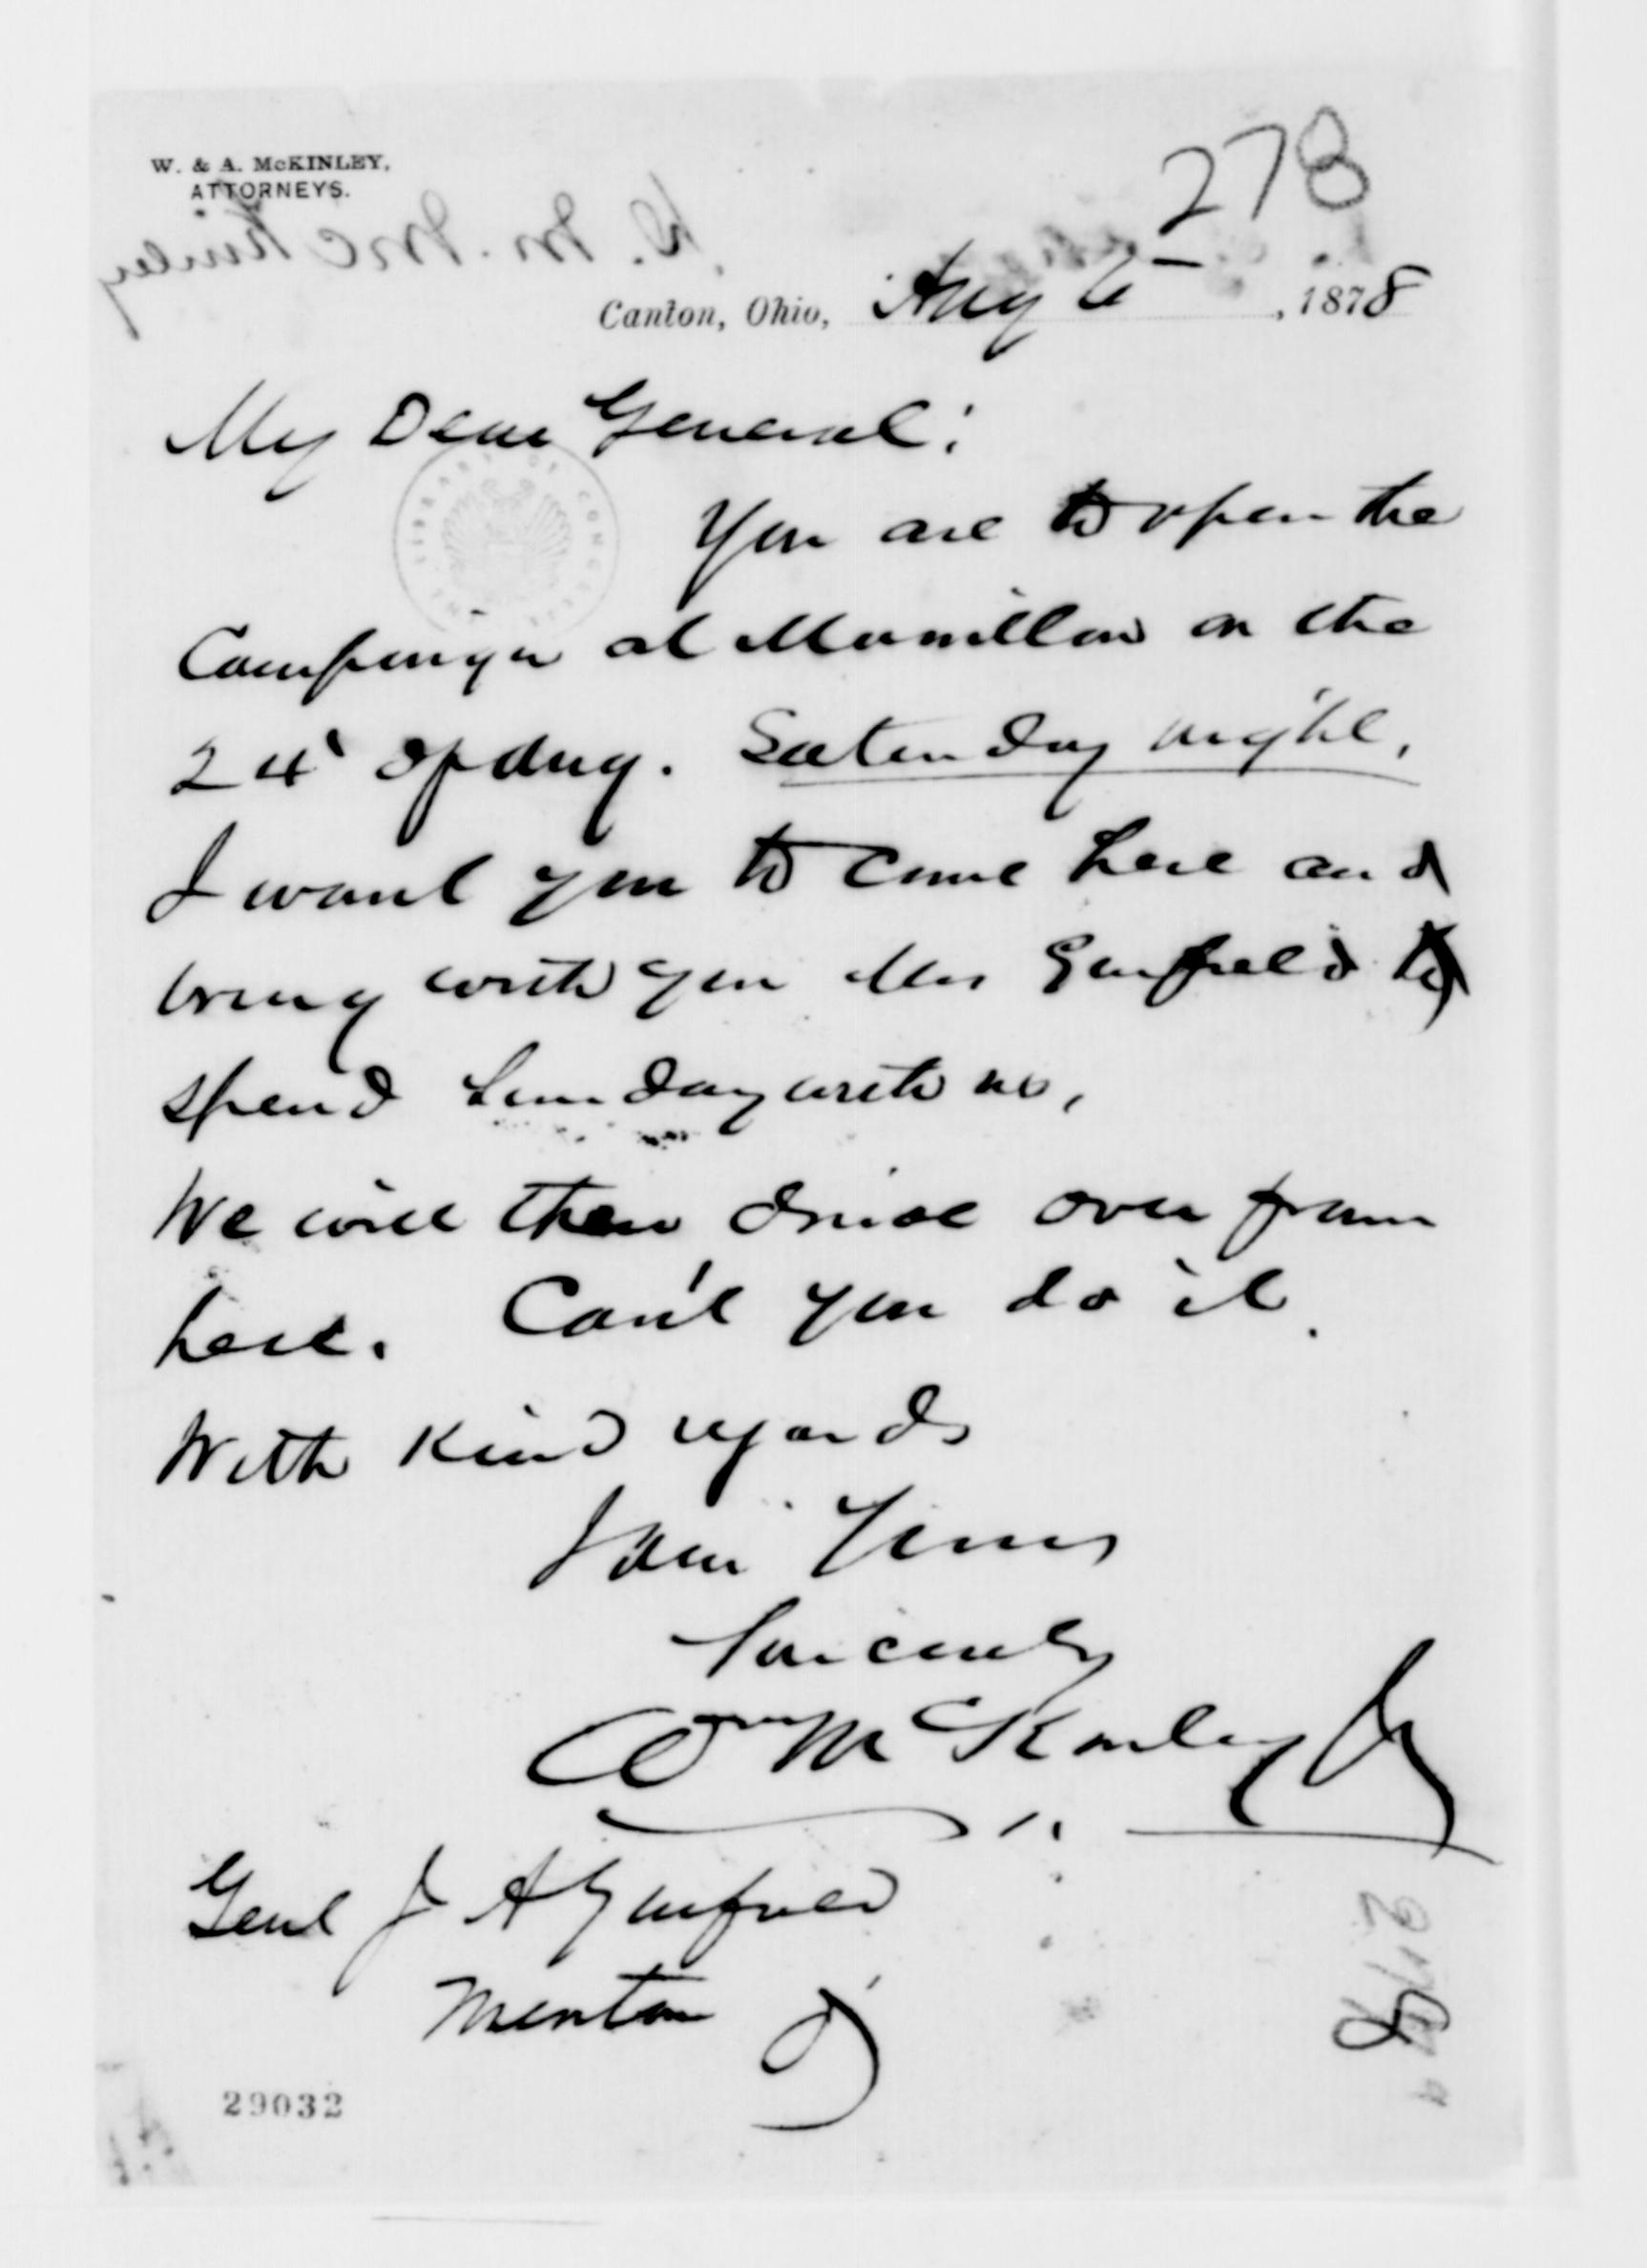 278
W. & A. McKINLEY,
ATTORNEYS.
Canton, Ohio, Aug 6 , 1878
My Dear General:
You are to open the
Campaign at Massillon on the
24" of Aug. Saturday night.
I want you to come here and
bring with you Mrs Garfield to
spend Sunday with us,
We will then drive over from
here. Can't you do it.
With kind regards
I am Yours
Sincerely
Wm McKinley Jr
Genl J A Garfield
Mentor O
29032